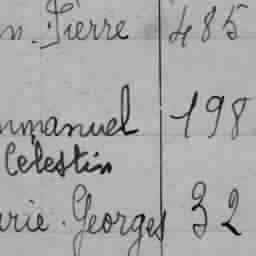 n. Pierre 485
nmanuel 198
Celestin
arie. Georges 32